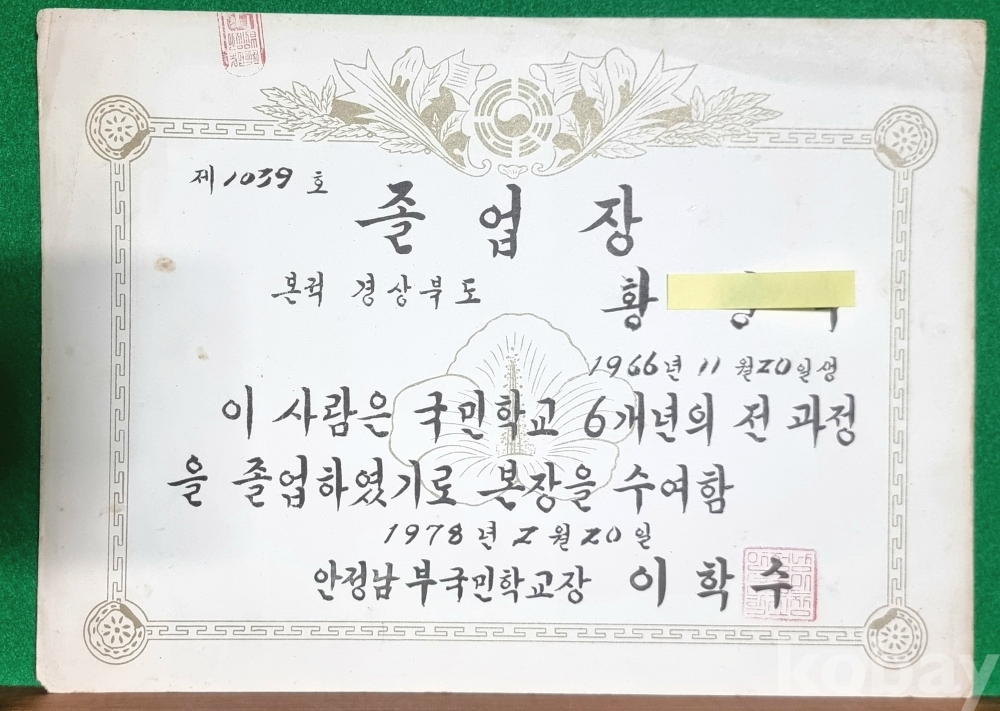 제 1039 호
졸업장
본적 경상북도
황
1966년 11월 20일생
이 사람은 국민학교 6개년의 전 과정
을 졸업하였기로 본장을 수여함
1978년 2월 20일
안정남부국민학교장 이학수
kobay